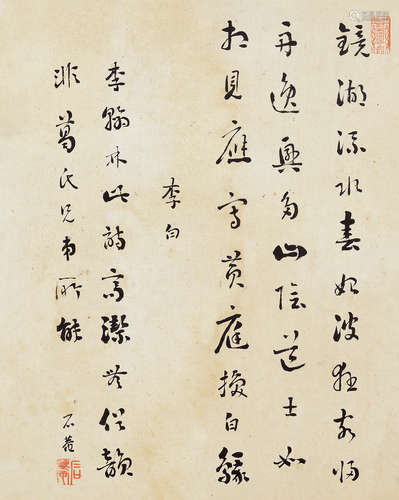 鏡湖流水春始波狂客歸
舟逸興多山陰道士如
相見應寫黃庭換白鵝
李白
李翰林此詩高潔無俗韻
非葛氏兄弟所能
石菴